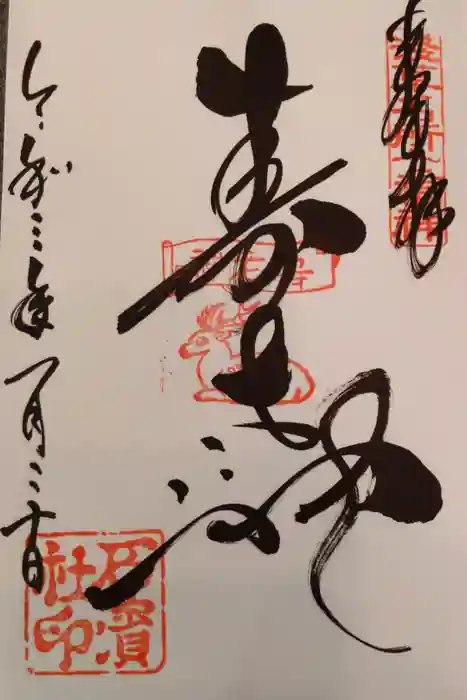 奉拝
寿老神
令和三年一月二十日
石濱
社印